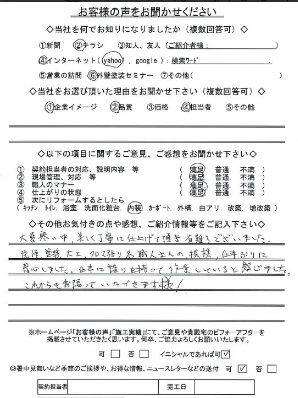 お客様の声をお聞かせください
◇当社を何でお知りになりましたか（複数回答可）◇
①新聞 ②チラシ ③知人、友人（ご紹介者様： ）
④インターネット（yahoo、google）：検索ワード・
⑤営業の訪問 ⑥外壁塗装セミナー ⑦その他（ ）
◇当社をお選び頂いた理由をお聞かせ下さい（複数回答可）◇
①企業イメージ ②品質 ③価格 ④担当者 ⑤その他
◇以下の項目に関するご意見、ご感想をお聞かせ下さい◇
1 契約担当者の対応、説明内容 等 （満足 普通 不満）
2 現場管理、対応 等 （満足 普通 不満）
3 職人のマナー （満足 普通 不満）
4 仕上がりの状態 （満足 普通 不満）
5 次にリフォームするとしたら
（キッチン トイレ 浴室 洗面化粧台 内装 カーポート 外構、白アリ、改築、増改築）
◇その他お気付きの点や感想、ご紹介情報等をご記入下さい◇
大変暑い中、早く丁寧に仕上げて頂き有難うございました。
洗浄、塗装、大工、クロス張り各職人さんの挨拶、仕事ぶりに
感心しました。仕事に誇りを持って
これからも頑張っていただきます様！
※ホームページ「お客様の声」「施工実績」にて、ご意見や貴殿宅のビフォーアフターを
掲載させていただきたく思います。何卒、ご協力よろしくお願いいたします。
可 □ 否 □ イニシャルであれば可 ☑
◎暑中見舞いなど季節のご挨拶や、お得な情報、ニュースレターなどの送付 可 ☑ 否 □
契約担当者 完工日